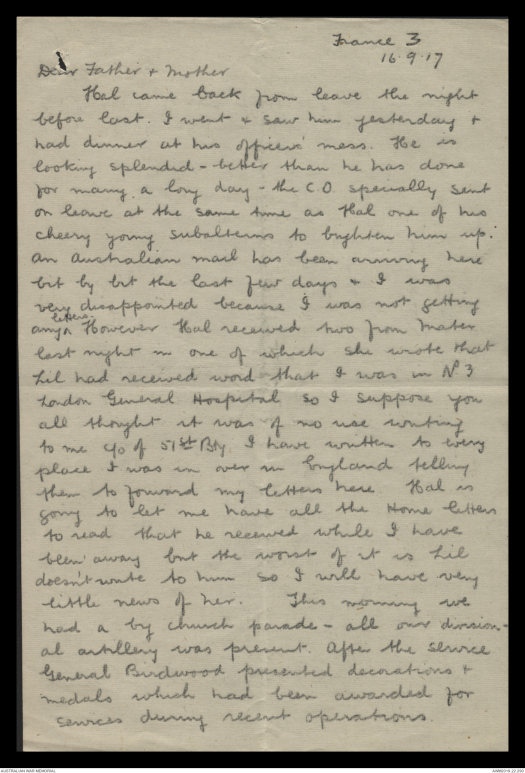 France 3
16.9.17
Dear Father & Mother
Hal came back from leave the night
before last. I went & saw him yesterday &
had dinner at his officers' mess. He is
looking splendid - better than he has done
for many a long day - the C.O. specially sent
on leave at the same time as Hal one of his
cheery young subalterns to brighten him up.
An Australian mail has been arriving here
bit by bit the last few days & I was
very disappointed because I was not getting
any letters. However Hal received two from Mater
last night in one of which she wrote that
Lil had received word that I was in No 3
London General Hospital so I suppose you
all thought it was of no use writing
to me c/o of 51st Bty. I have written to every
place I was in over in England telling
them to forward my letters here. Hal is
going to let me have all the Home letters
to read that he received while I have
been away but the worst of it is Lil
doesn't write to him so I will have very
little news of her. This morning we
had a big church parade - all our division-
al artillery was present. After the service
General Birdwood presented decorations &
medals which had been awarded for
services during recent operations.
AUSTRALIAN WAR MEMORIAL